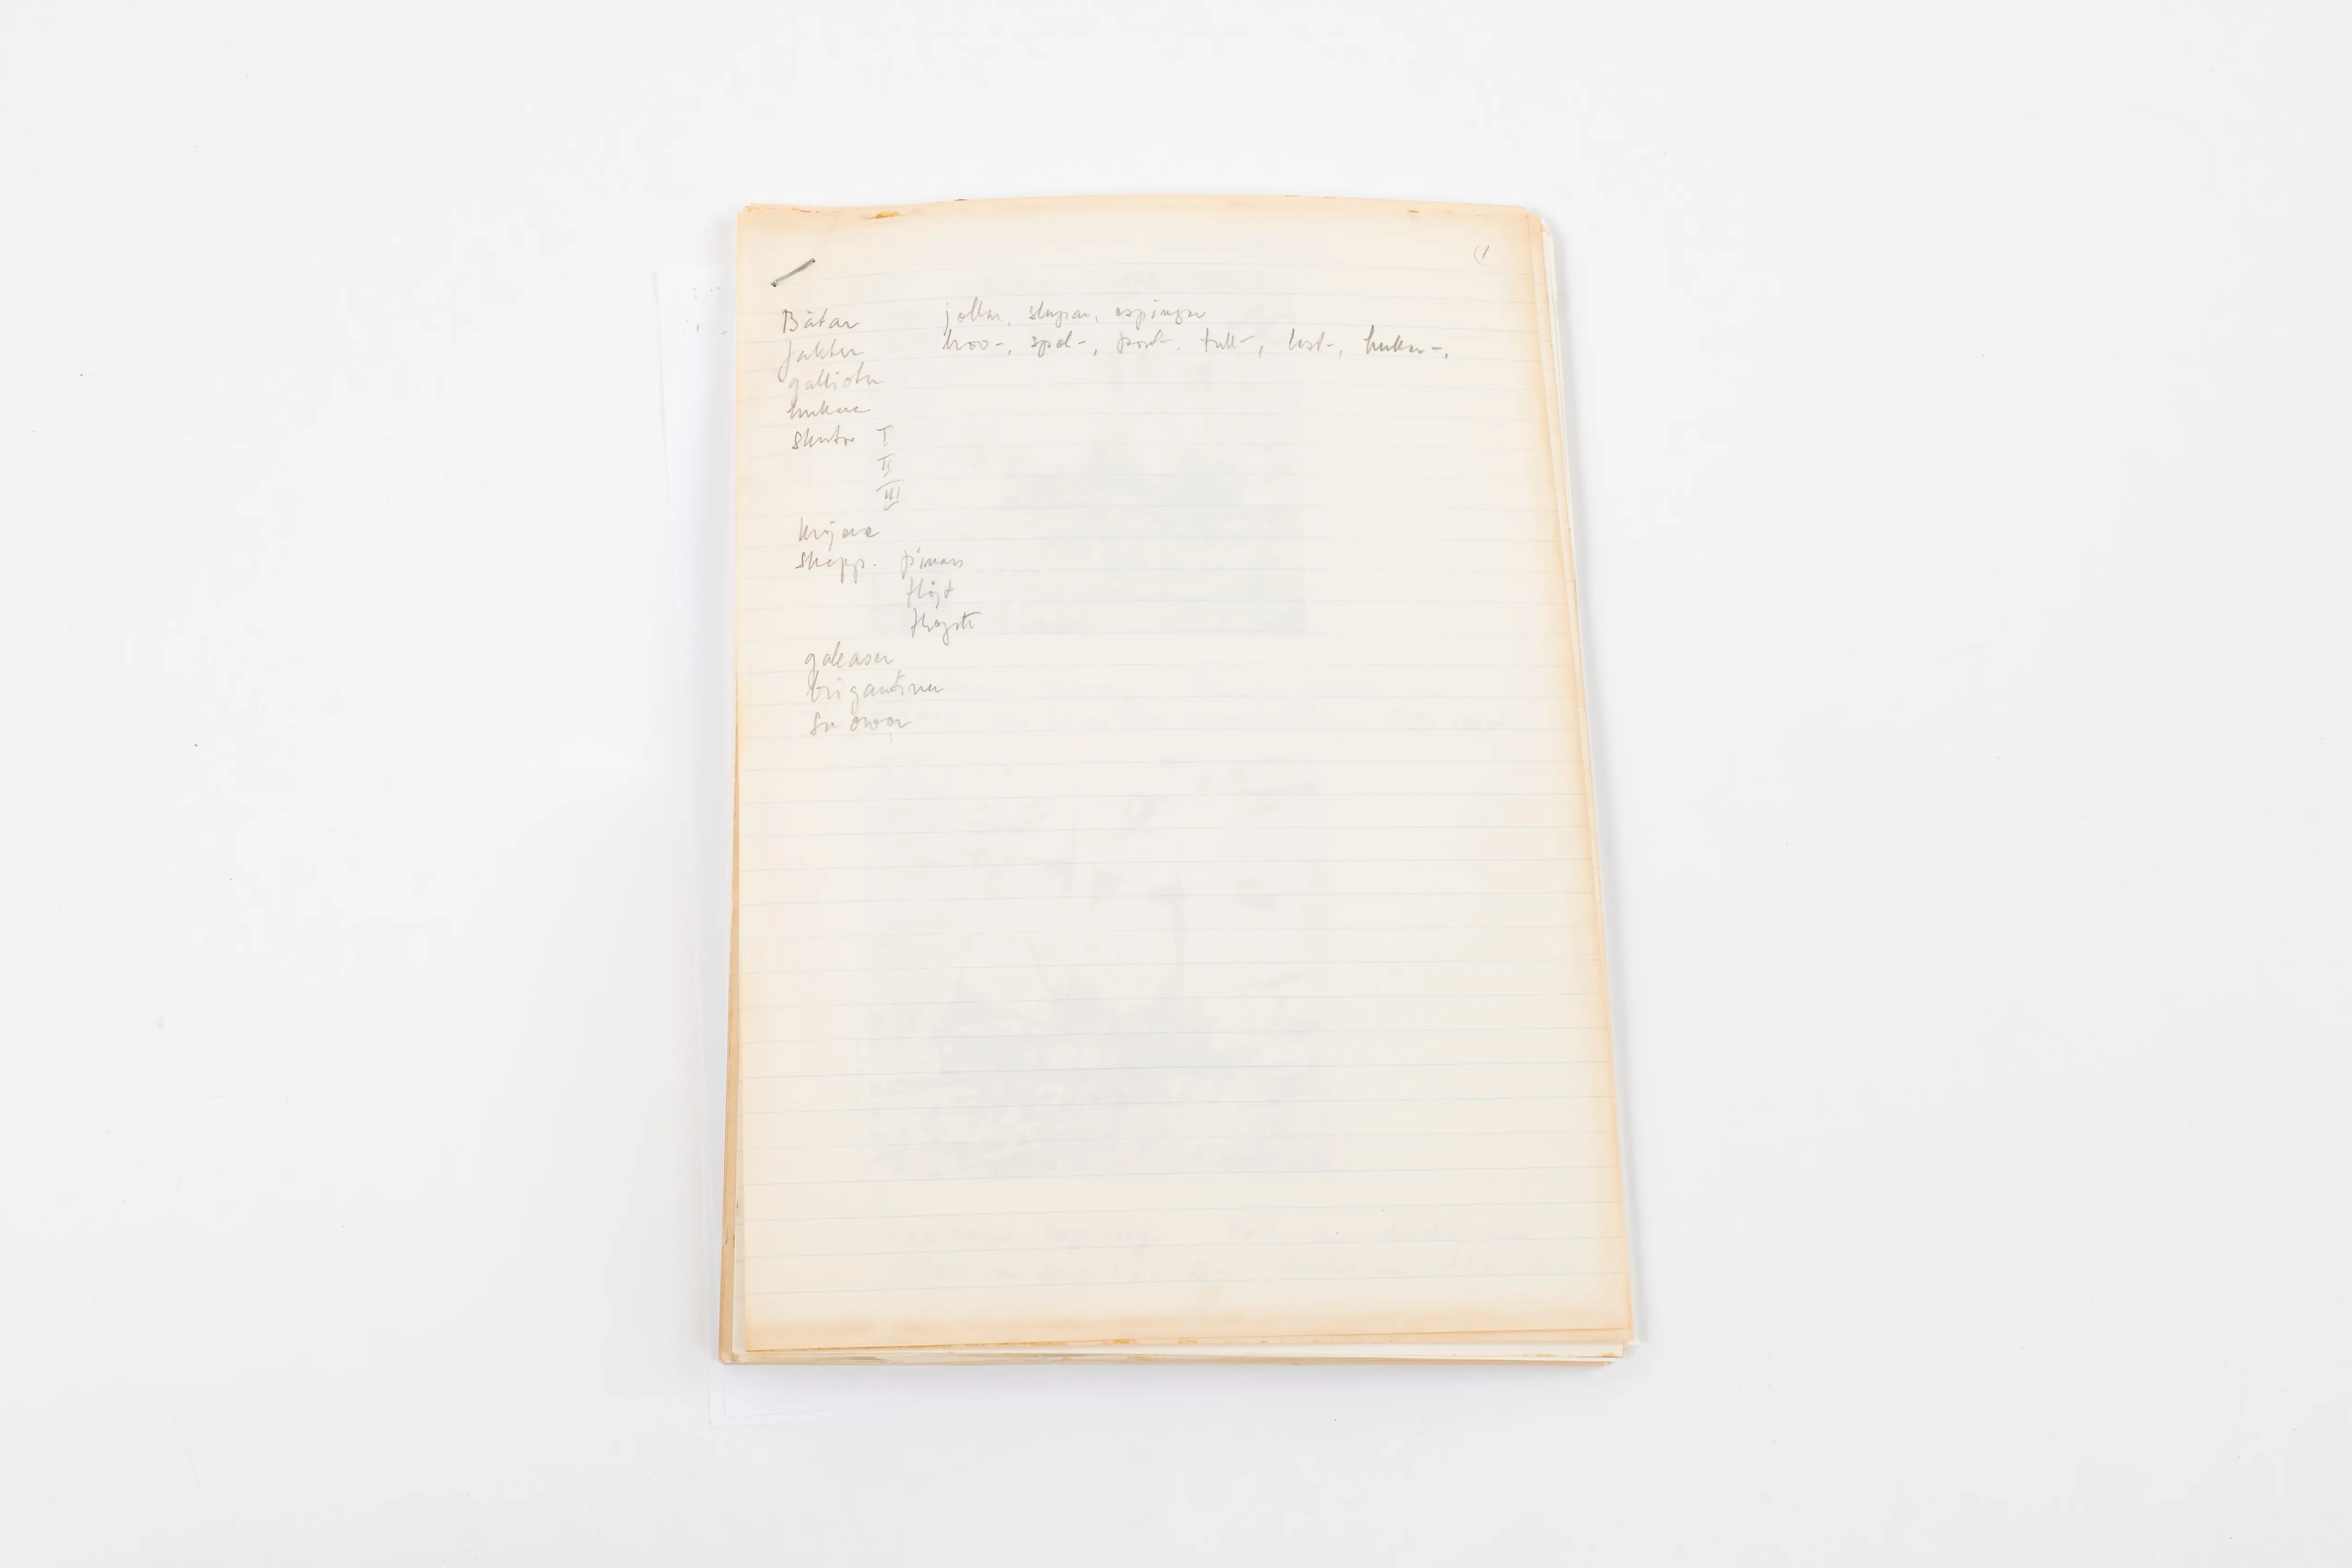 (1
Båtar jollar, slupar, espingar
Jakter kroo-, spel-, post-, tull-, last-, hukar-,
gallioter
hukare
skutor I
II
III
kröjare
skepp. pinass
flöjt
flöjte
galeaser
brigantiner
snowor